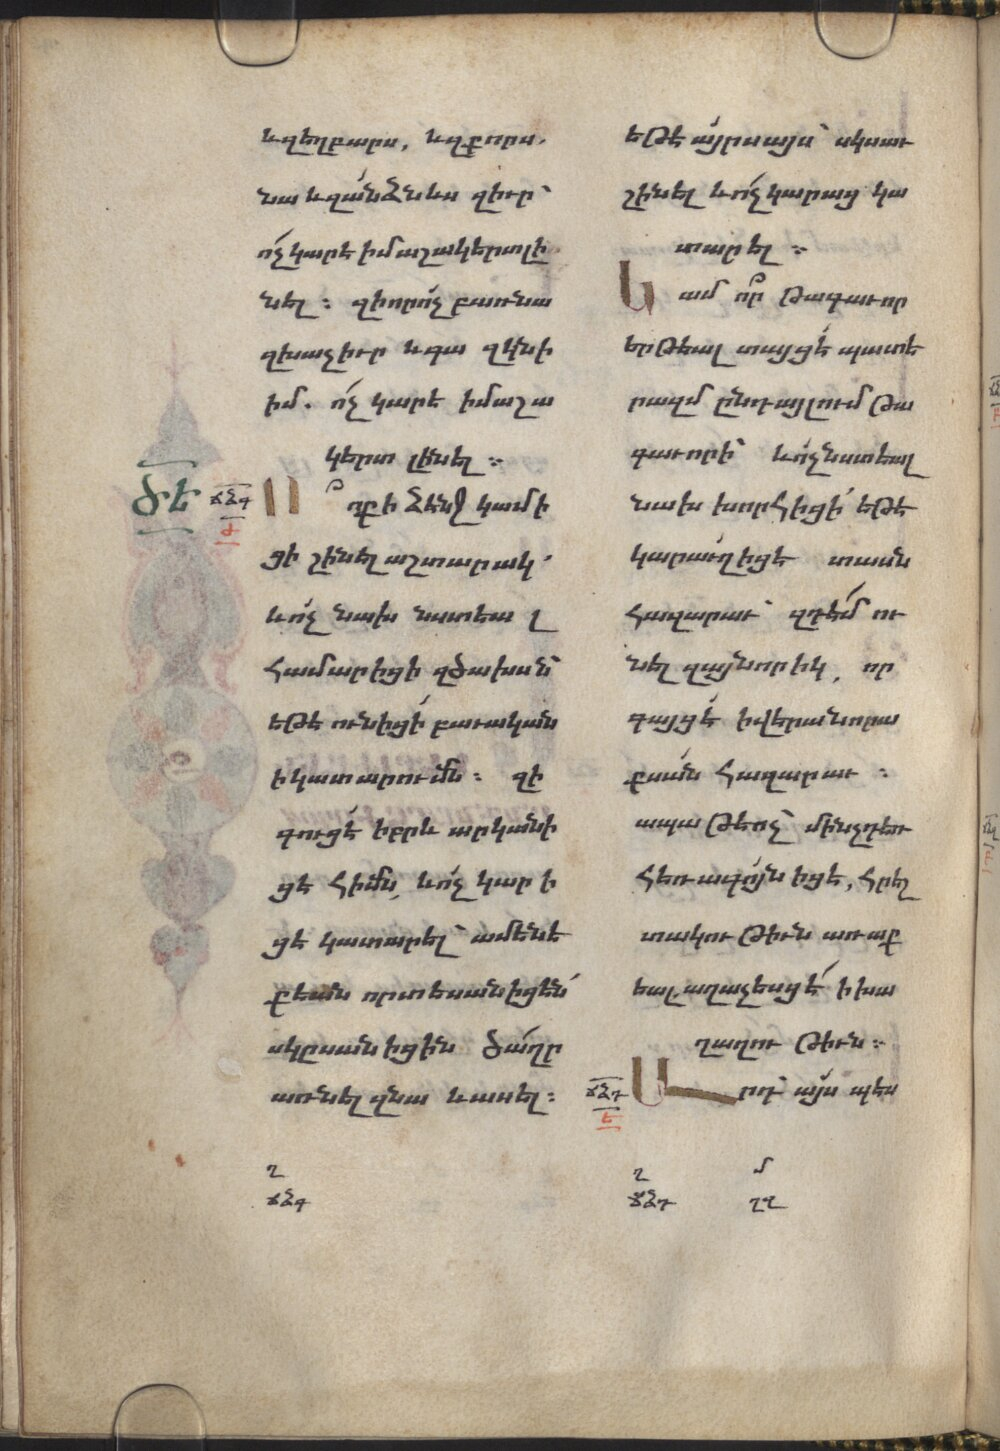 եւզեղբարս, եւզքորս.
նա եւզանձնեւս զիւր՝
ոչ կարէ իմ աշակերտ լի
նել։ զի որ ոչ բառնա
զխաչ իւր եւ գա զկնի
իմ. ոչ կարէ իմ աշա
կերտ լինել։
ծե
ճձգ
Ո
վ ք ի ձէնջ կամի
ցի շինել աշտարակ՝
եւոչ նախ նստեալ
համարիցի զծախսն՝
եթէ ունիցի բաւական
ի կատարումն։ զի
գուցէ իբրեւ արկանի
ցէ հիմն, եւոչ կարի
ցէ կատարել՝ ամենե
քեան որ տեսանիցեն
սկըսանիցին ծաղր
առնել զնա եւասել։
եթէ այրս այս՝ սկսաւ
շինել եւոչ կարաց կա
տարել։
Կ
ամ որ թագաւոր
երթեալ տայցէ պատե
րազմ ընդ այլում թա
գաւորի՝ եւոչ նստեալ
նախ խորհիցի եթէ
կարաւղ իցէ տասն
հազարաւ՝ զդէմ ու
նել զայնորիկ, որ
գայցէ ի վերա նորա
քսան հազարաւ։
ապա թէ ոչ՝ մինչդեռ
հեռագոյն իցէ, հրեշ
տակութիւն առաք
եալ. աղաչեսցէ ի խա
ղաղութիւն։
ճձդ
ե
Ա
րդ՝ այս պես
ղ
ճձգ
ղ մ
ճձդ ղզ